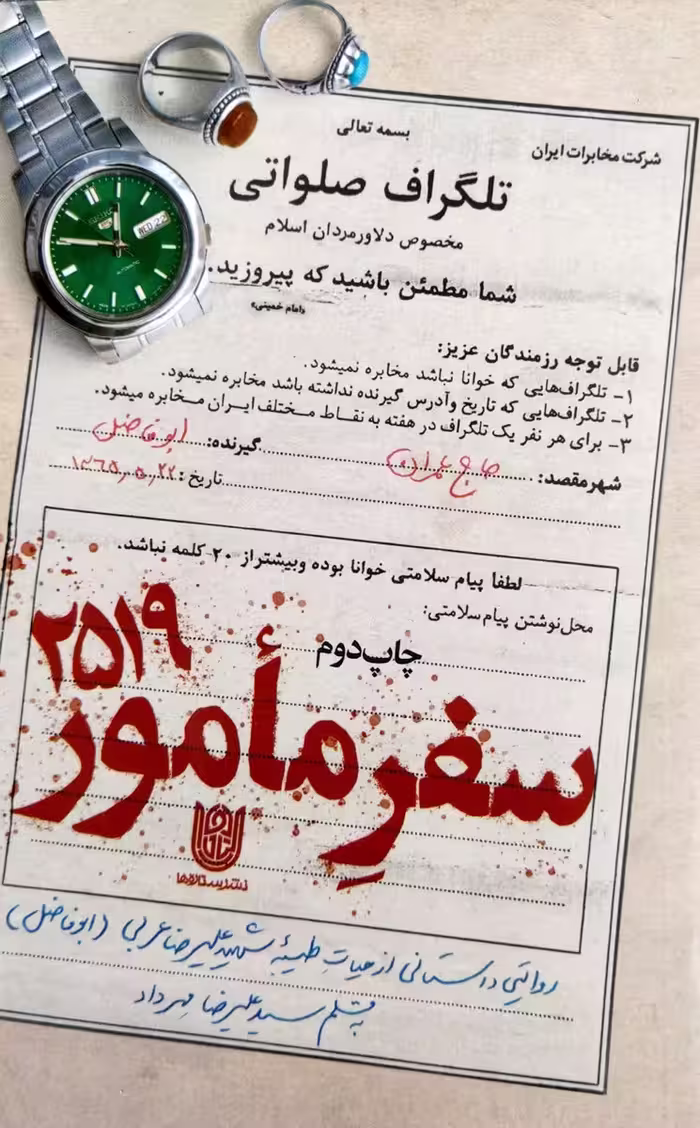 SEIKO
5
AUTOMATIC
WED 22
بسمه تعالی
شرکت مخابرات ایران
تلگراف صلواتی
مخصوص دلاورمردان اسلام
شما مطمئن باشید که پیروزید.
«امام خمینی»
قابل توجه رزمندگان عزیز:
۱- تلگراف‌هایی که خوانا نباشد مخابره نمیشود.
۲- تلگراف‌هایی که تاریخ وآدرس گیرنده نداشته باشد مخابره نمیشود.
۳- برای هر نفر یک تلگراف در هفته به نقاط مختلف ایران مخابره میشود.
شهرمقصد: حاج عمران گیرنده: ابوفاضل
تاریخ: ۱۳۶۵٫۵٫۲۲
لطفا پیام سلامتی خوانا بوده وبیشتراز ۲۰ کلمه نباشد.
محل‌نوشتن پیام‌سلامتی:
چاپ‌دوم
۲۵۱۹
سفرِ مأمور
نشر ستاره‌ها
روایتی داستانی از حیاتِ طیبهٔ شهید علیرضا عربی (ابوفاضل)
به قلم سیدعلیرضا مهرداد